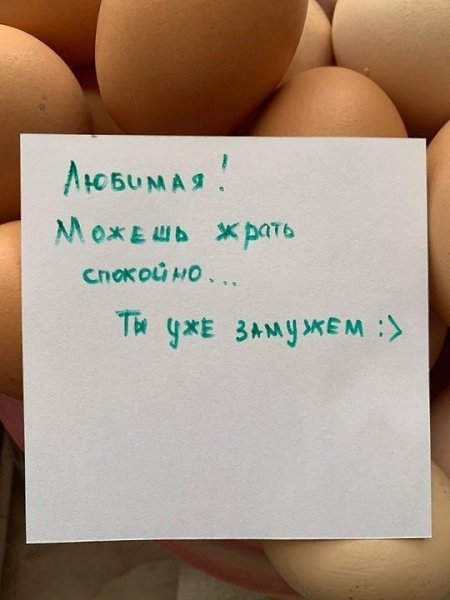 Любимая!
Можешь жрать
спокойно...
Ты уже замужем :>